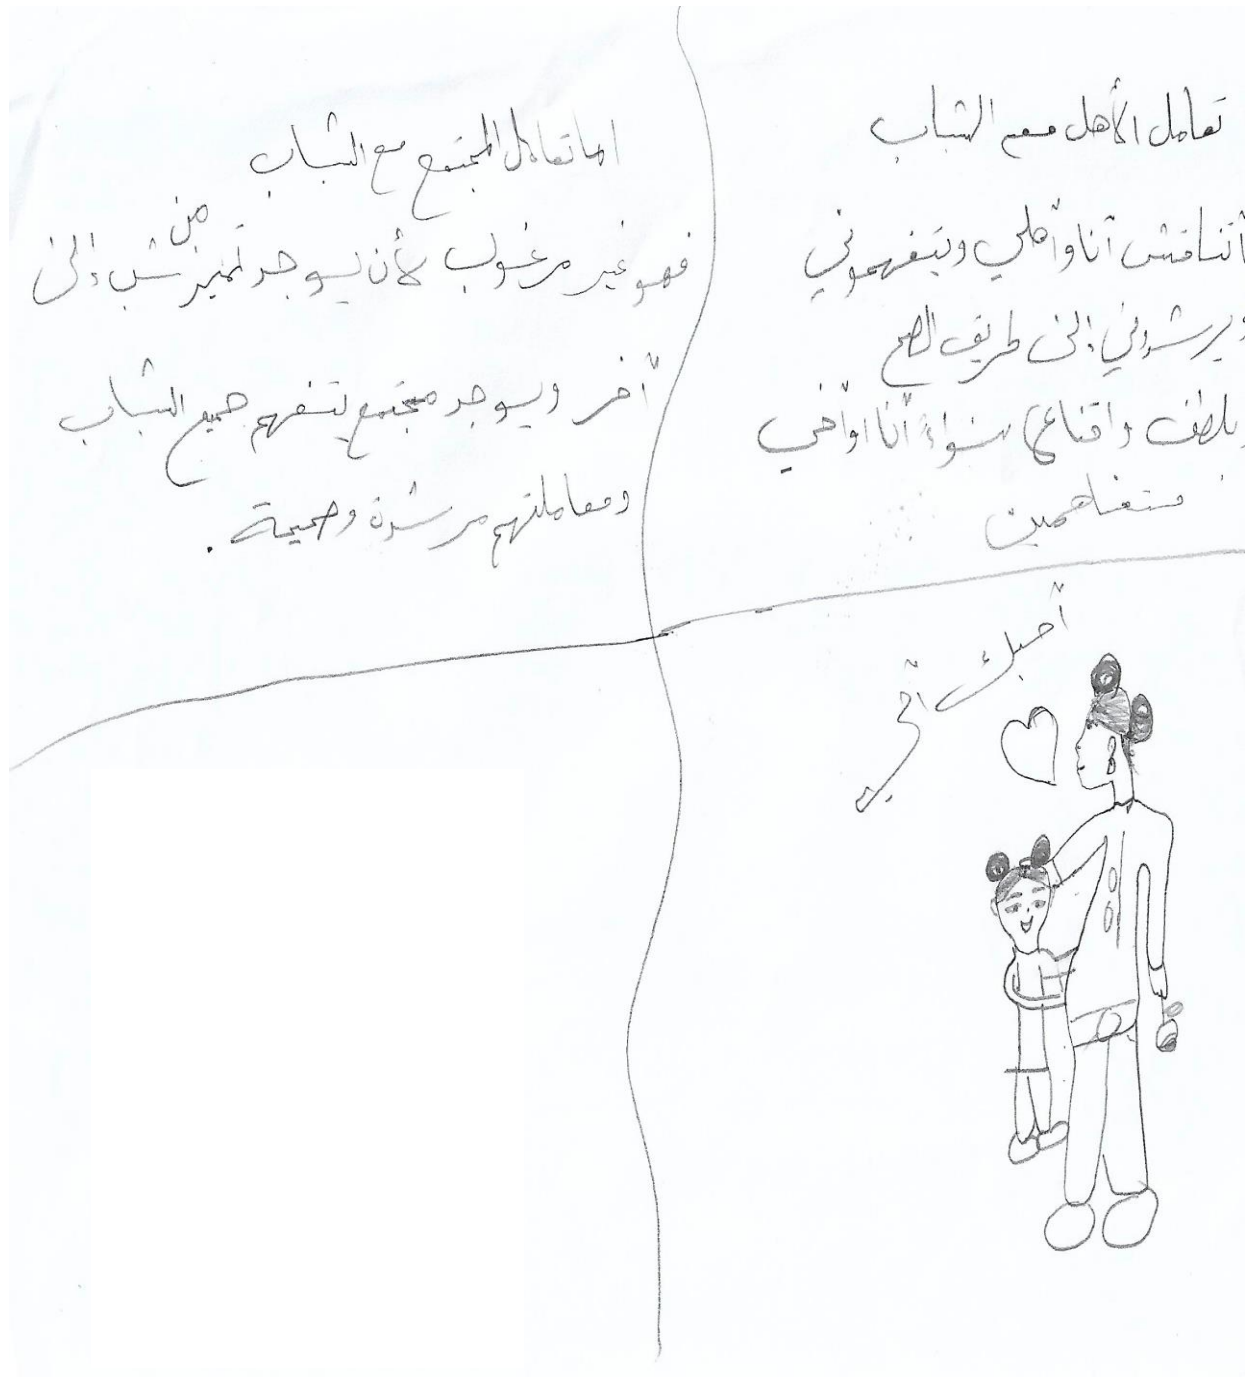 تعامل الأهل مع الشباب
أتناقش أنا وأهلي ويتفهموني
ويرشدوني إلى طريق الصح
بلطف واقناع سواء أنا اوأخي
متفاهمين
اما تعامل المجتمع مع الشباب
فهو غير مرغوب لأن يوجد تميز من شب إلى
أخر ويوجد مجتمع يتفهم جميع الشباب
ومعاملتهم مرشدة وصحيحة.
أحبك أمي